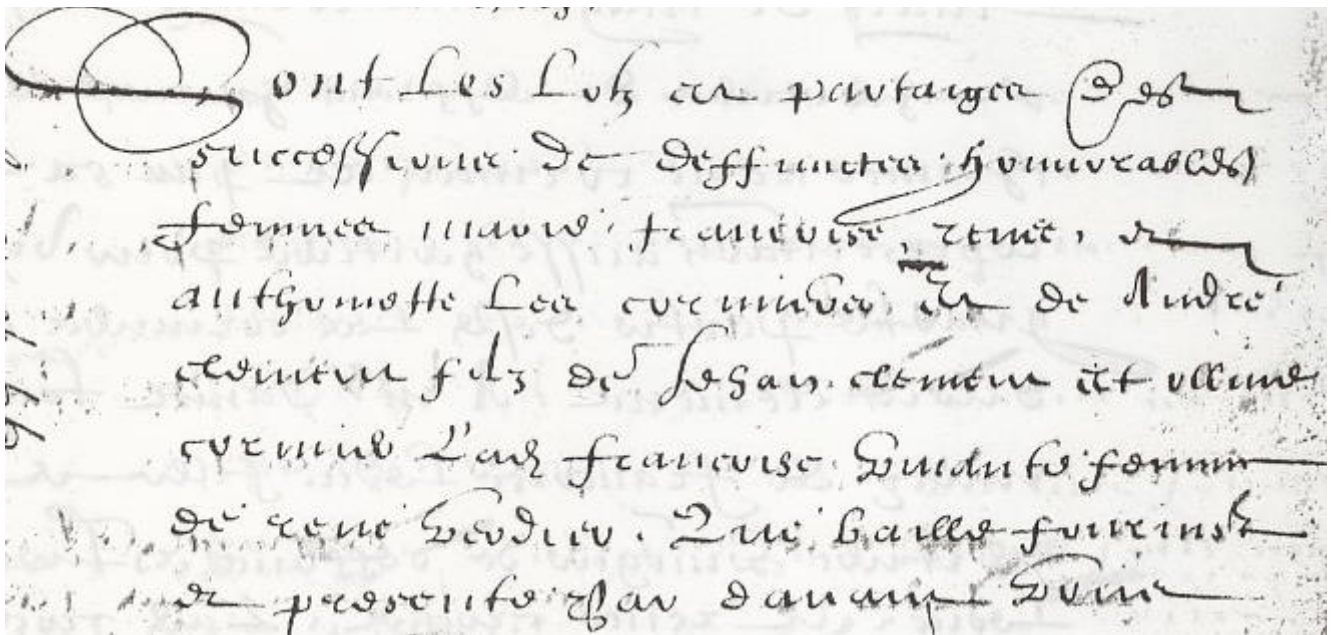 Sont les lotz et partaiges des
successions de deffunctes honnorables
femmes marie, francoise, renee, et
anthoinette les cormiers et de André
clement filz de Jehan clement et ollive
cormier lad francoise vivante femme
de rené verdier. Que baille fournist
et presente par davant vous